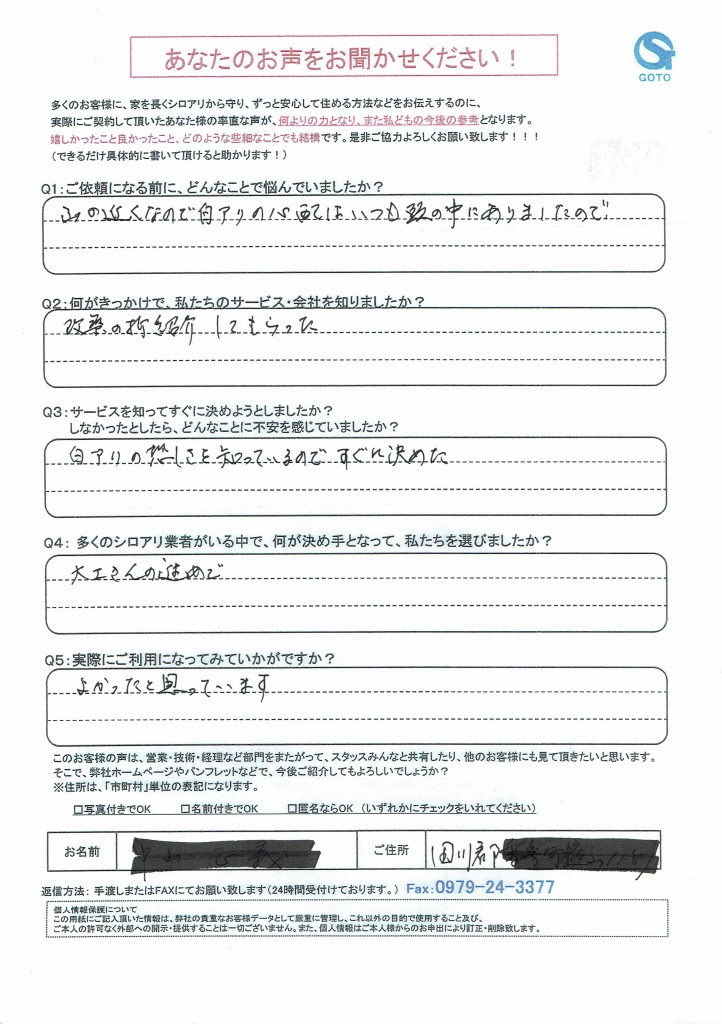 あなたのお声をお聞かせください！
GOTO
多くのお客様に、家を長くシロアリから守り、ずっと安心して住める方法などをお伝えするのに、
実際にご契約して頂いたあなた様の率直な声が、何よりの力となり、また私どもの今後の参考となります。
嬉しかったこと良かったこと、どのような些細なことでも結構です。是非ご協力よろしくお願い致します！！！
（できるだけ具体的に書いて頂けると助かります！）
Q1：ご依頼になる前に、どんなことで悩んでいましたか？
山の近くなので白アリの心配はいつも頭の中にありましたので
Q2：何がきっかけで、私たちのサービス・会社を知りましたか？
改築の折紹介してもらった
Q3：サービスを知ってすぐに決めようとしましたか？
しなかったとしたら、どんなことに不安を感じていましたか？
白アリの恐しさを知っているのですぐに決めた
Q4： 多くのシロアリ業者がいる中で、何が決め手となって、私たちを選びましたか？
大工さんの進めで
Q5：実際にご利用になってみていかがですか？
よかったと思っています
このお客様の声は、営業・技術・経理など部門をまたがって、スタッスみんなと共有したり、他のお客様にも見て頂きたいと思います。
そこで、弊社ホームページやパンフレットなどで、今後ご紹介してもよろしいでしょうか？
※住所は、「市町村」単位の表記になります。
□写真付きでOK □名前付きでOK □匿名ならOK （いずれかにチェックをいれてください）
お名前 ご住所 田川郡
返信方法： 手渡しまたはFAXにてお願い致します（24時間受付けております。） Fax：0979-24-3377
個人情報保護について
この用紙にご記入頂いた情報は、弊社の貴重なお客様データとして厳重に管理し、これ以外の目的で使用すること及び、
ご本人の許可なく外部への開示・提供することは一切ございません。また、個人情報はご本人様からのお申出により訂正・削除致します。